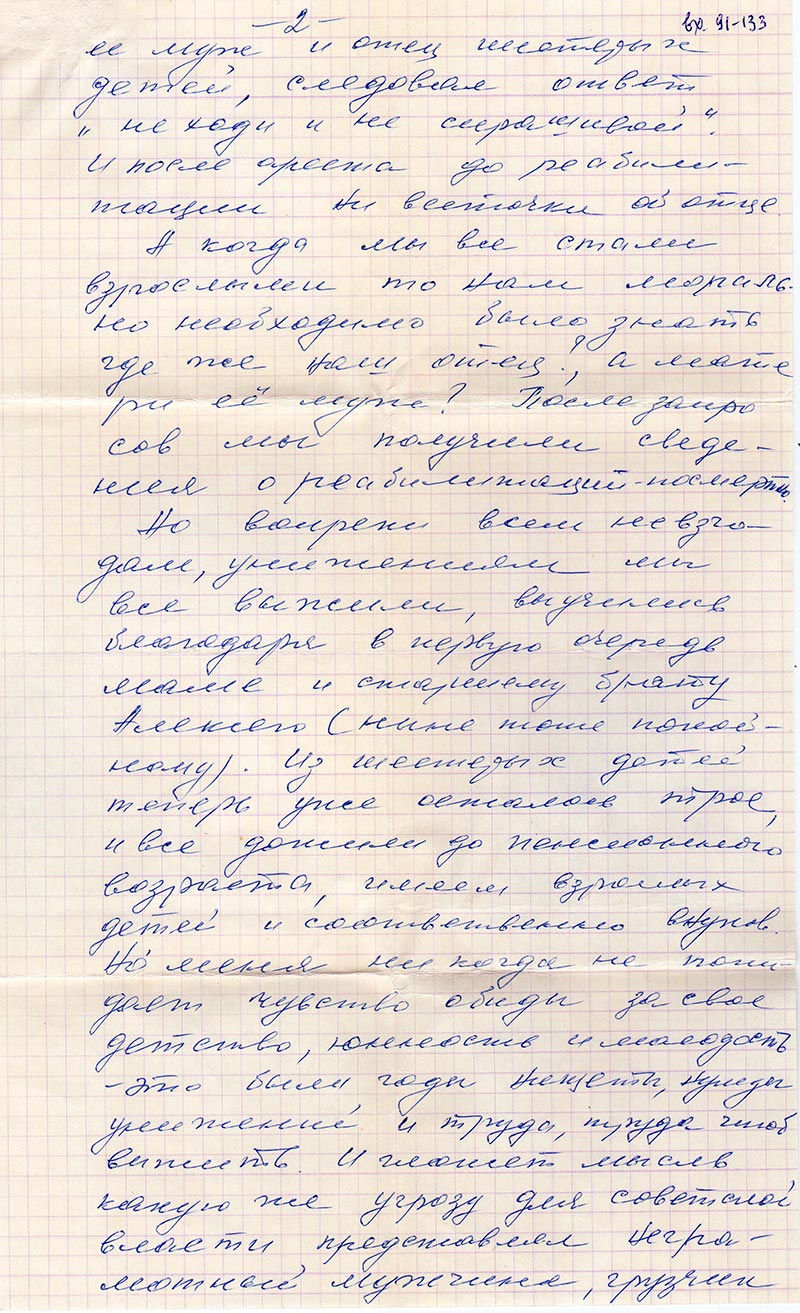 -2-
вр. 91-133
ее муж и отец шестерых
детей, следовал ответ
„не ходи и не спрашивай".
И после ареста до реабили-
тации ни весточки об отце.
А когда мы все стали
взрослыми то нам мораль-
но необходимо было знать
где же наш отец?, а мате
ри её муж? После запро
сов мы получили сведе-
ния о реабилитаций-посмертно.
Но вопреки всем невзго-
дам, унижениям мы
все выжили, выучились
благодаря в первую очередь
маме и старшему брату
Алексею (ныне тоже покой-
ному). Из шестерых детей
теперь уже осталось трое,
и все дожили до пенсионного
возраста, имеем взрослых
детей и соответственно внуков.
Но меня ни когда не поки-
дает чувство обиды за свое
детство, юнность и молодость
-это были годы нищеты, нужды
унижений и труда, труда чтоб
выжить. И гложет мысль
какую же угрозу для советской
власти представлял негра-
мотный мужчина, грузчик